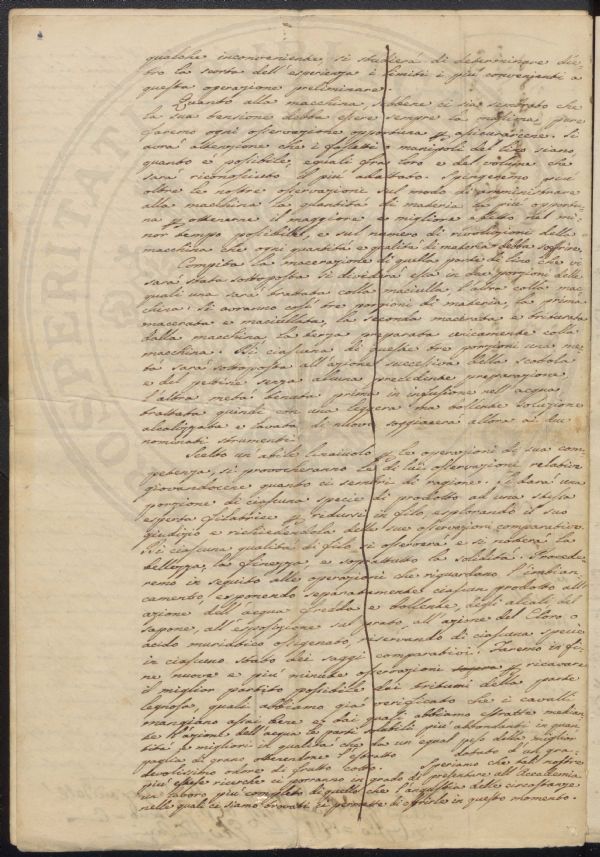 qualche inconveniente, si studierà di determinare die-
tro la scorta dell'esperienza i limiti i più convenienti a
questa operazione preliminare.
Quanto alla macchina, sebbene ci sia sembrato che
la sua tensione debba essere sempre la migliore, pure
faremo ogni osservazione opportuna p assicurarcene. Si
avrà attenzione che i fascetti o manipoli del lino siano,
quanto è possibile, eguali fra loro e del volume che
sarà riconosciuto il più adattato. Spingeremo più
oltre le nostre osservazioni sul modo di somministrare
alla macchina la quantità di materia la più opportu-
na p ottenerne il maggiore e migliore effetto nel mi-
nor tempo possibile, e sul numero di rivoluzioni della
macchina che ogni quantità e qualità di materia debba soffrire.
Compita la macerazione di quella parte di lino che vi
sarà stata sottoposta si dividerà essa in due porzioni delle
quali una sarà trattata colla maciulla l'altra colla mac-
china. Si avranno così tre porzioni di materia, la prima
macerata e maciullata, la seconda macerata e triturata
dalla macchina la terza preparata unicamente colla
macchina. Di ciascuna di queste tre porzioni una me-
tà sarà sottoposta all'azione successiva della scotola
e del pettine senza alcuna precedente preparazione
l'altra metà tenuta prima in infusione nell'acqua
trattata quindi con una leggera ma bollente soluzione
alcalizzata e lavata di nuovo soggiacerà allora ai due
nominati strumenti.
Scelto un abile linaiuolo p le operazioni di sua com-
petenza, si provocheranno le di lui osservazioni relative
giovandocene quanto ci sembri di ragione. Si darà una
porzione di ciascuna specie di prodotto ad una stessa
esperta filatrice p ridursi in filo esplorando il suo
giudizio e richiedendola delle sue osservazioni comparative.
Di ciascuna qualità di filo si osserverà e si noterà la
bellezza, la finezza, e soprattutto la solidità. Procede-
remo in seguito alle operazioni che riguardano l'imbian-
camento, esponendo separatamente ciascun prodotto all'
azione dell'acqua fredda e bollente, degli alcali, del
sapone, all'esposizione sul prato, all'azione del Cloro o
acido muriatico ossigenato, riservando di ciascuna specie
in ciascuno stato dei saggi comparativi. Faremo in fi-
ne, nuove e più minute osservazioni sopra p ricavare
il miglior partito possibile dai tritumi della parte
legnosa, quali abbiamo già verificato che i cavalli
mangiano assai bene e dai quali abbiamo estratte median-
te l'azione dell'acqua le parti solubili più abbondanti in quan-
tità e migliori in qualità che da un egual peso della miglior
paglia di grano ottenendone l'estratto dotato d'un gra-
devolissimo odore di frutto cotto. Speriamo che tali nostre
più estese ricerche ci porranno in grado di presentare all'Accademia
un lavoro più completo di quello che l'angustia delle circostanze
nelle quali ci siamo trovati ci permette di offrirle in questo momento.